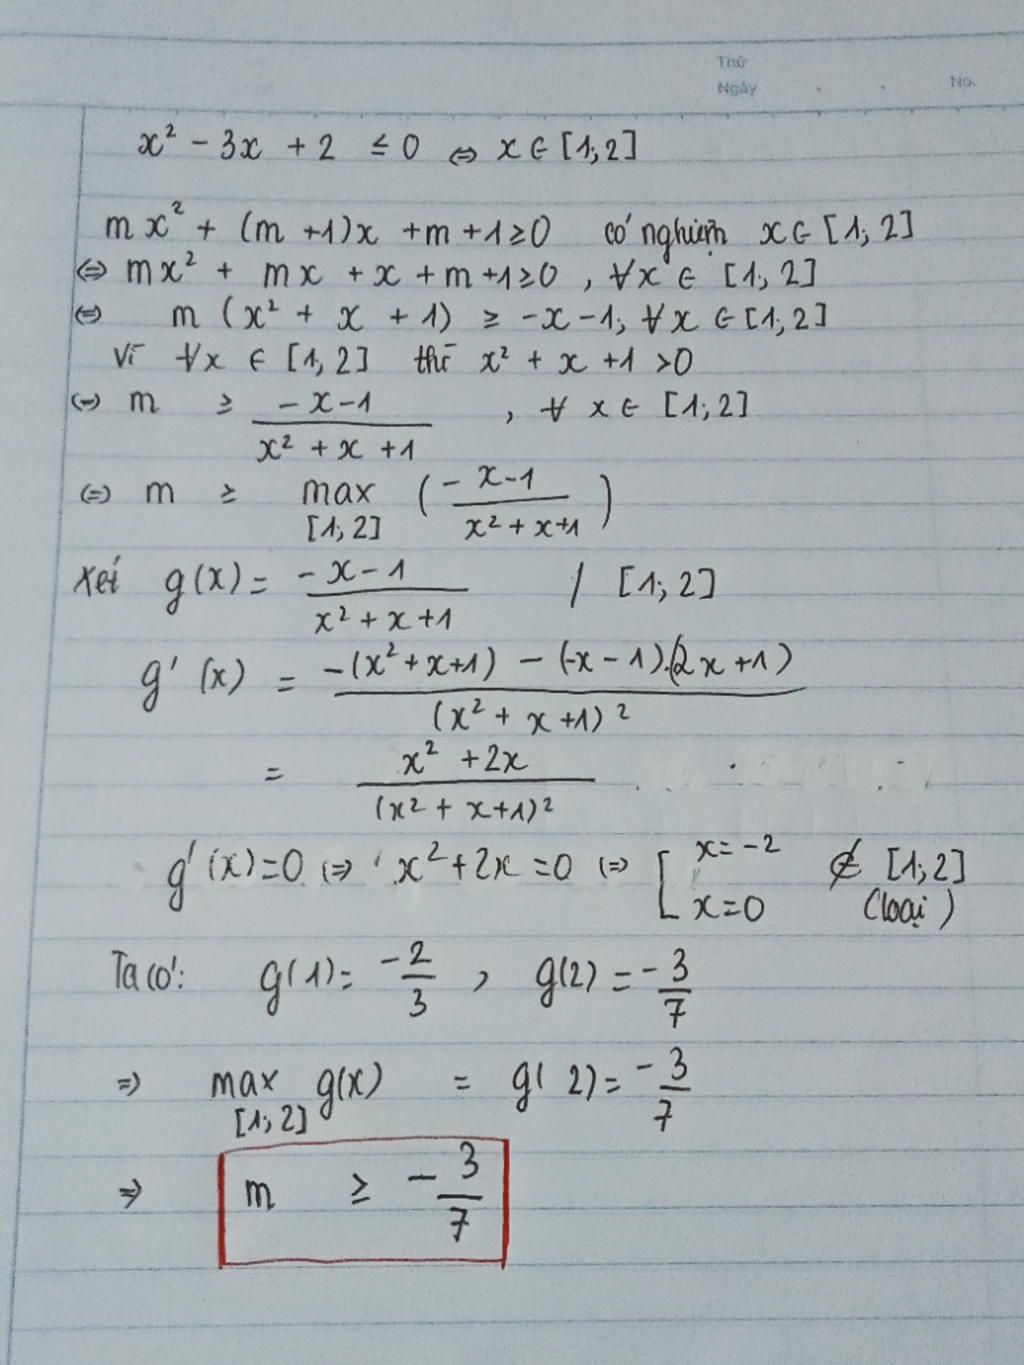 Thứ
Ngày . . No.
x² - 3x + 2 ≤ 0 ⇔ x ∈ [1; 2]
mx² + (m+1)x + m + 1 ≥ 0 có nghiệm x ∈ [1; 2]
⇔ mx² + mx + x + m + 1 ≥ 0, ∀x ∈ [1; 2]
⇔ m (x² + x + 1) ≥ -x - 1; ∀x ∈ [1; 2]
Vì ∀x ∈ [1; 2] thì x² + x + 1 > 0
⇔ m ≥ (-x-1)/(x² + x + 1), ∀x ∈ [1; 2]
⇔ m ≥ max [1; 2] ((-x-1)/(x² + x + 1))
Xét g(x) = (-x-1)/(x² + x + 1) / [1; 2]
g'(x) = (-(x² + x + 1) - (-x - 1).(2x + 1))/(x² + x + 1)²
= (x² + 2x)/(x² + x + 1)²
g'(x) = 0 ⇔ x² + 2x = 0 ⇔ [ x = -2 ∉ [1; 2]
x = 0 (loại)
Ta có: g(1) = -2/3, g(2) = -3/7
⇒ max [1; 2] g(x) = g(2) = -3/7
⇒ m ≥ -3/7